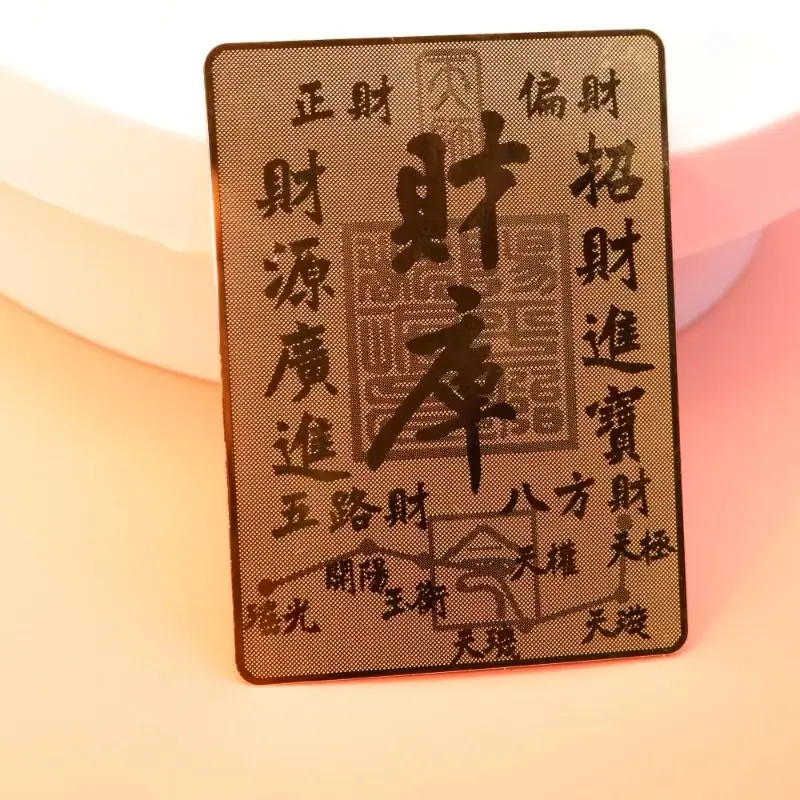 正財
偏財
財庫
財源廣進
招財進寶
五路財
八方財
天極
天權
開陽
玉衡
瑤光
天璣
天璇